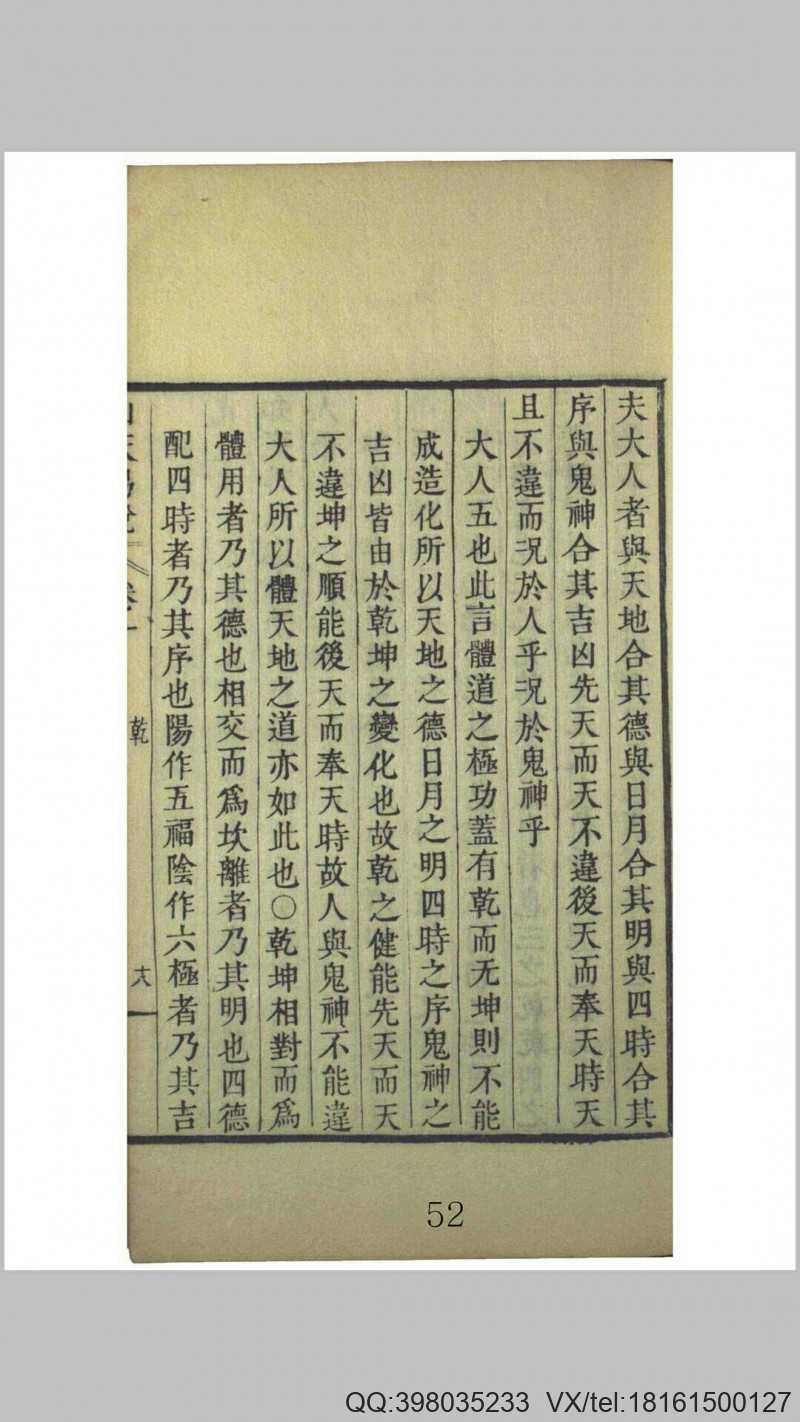 夫大人者與天地合其德與日月合其明與四時合其
序與鬼神合其吉凶先天而天不違後天而奉天時天
且不違而况於人乎况於鬼神乎
大人五也此言體道之極功蓋有乾而无坤則不能
成造化所以天地之德日月之明四時之序鬼神之
吉凶皆由於乾坤之變化也故乾之健能先天而天
不違坤之順能後天而奉天時故人與鬼神不能違
大人所以體天地之道亦如此也○乾坤相對而爲
體用者乃其德也相交而爲坎離者乃其明也四德
配四時者乃其序也陽作五福陰作六極者乃其吉
乾
52
QQ:398035233 VX/tel:18161500127